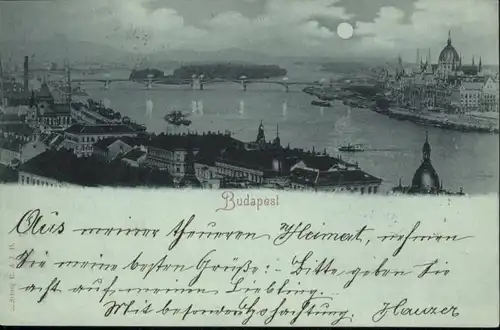 Budapest
Aus meiner theueren Heimat, nehmen
Sie meine besten Grüße! Bitte geben Sie
acht auf meinen Liebling.
Mit besonder Hochachtung, Hauzer